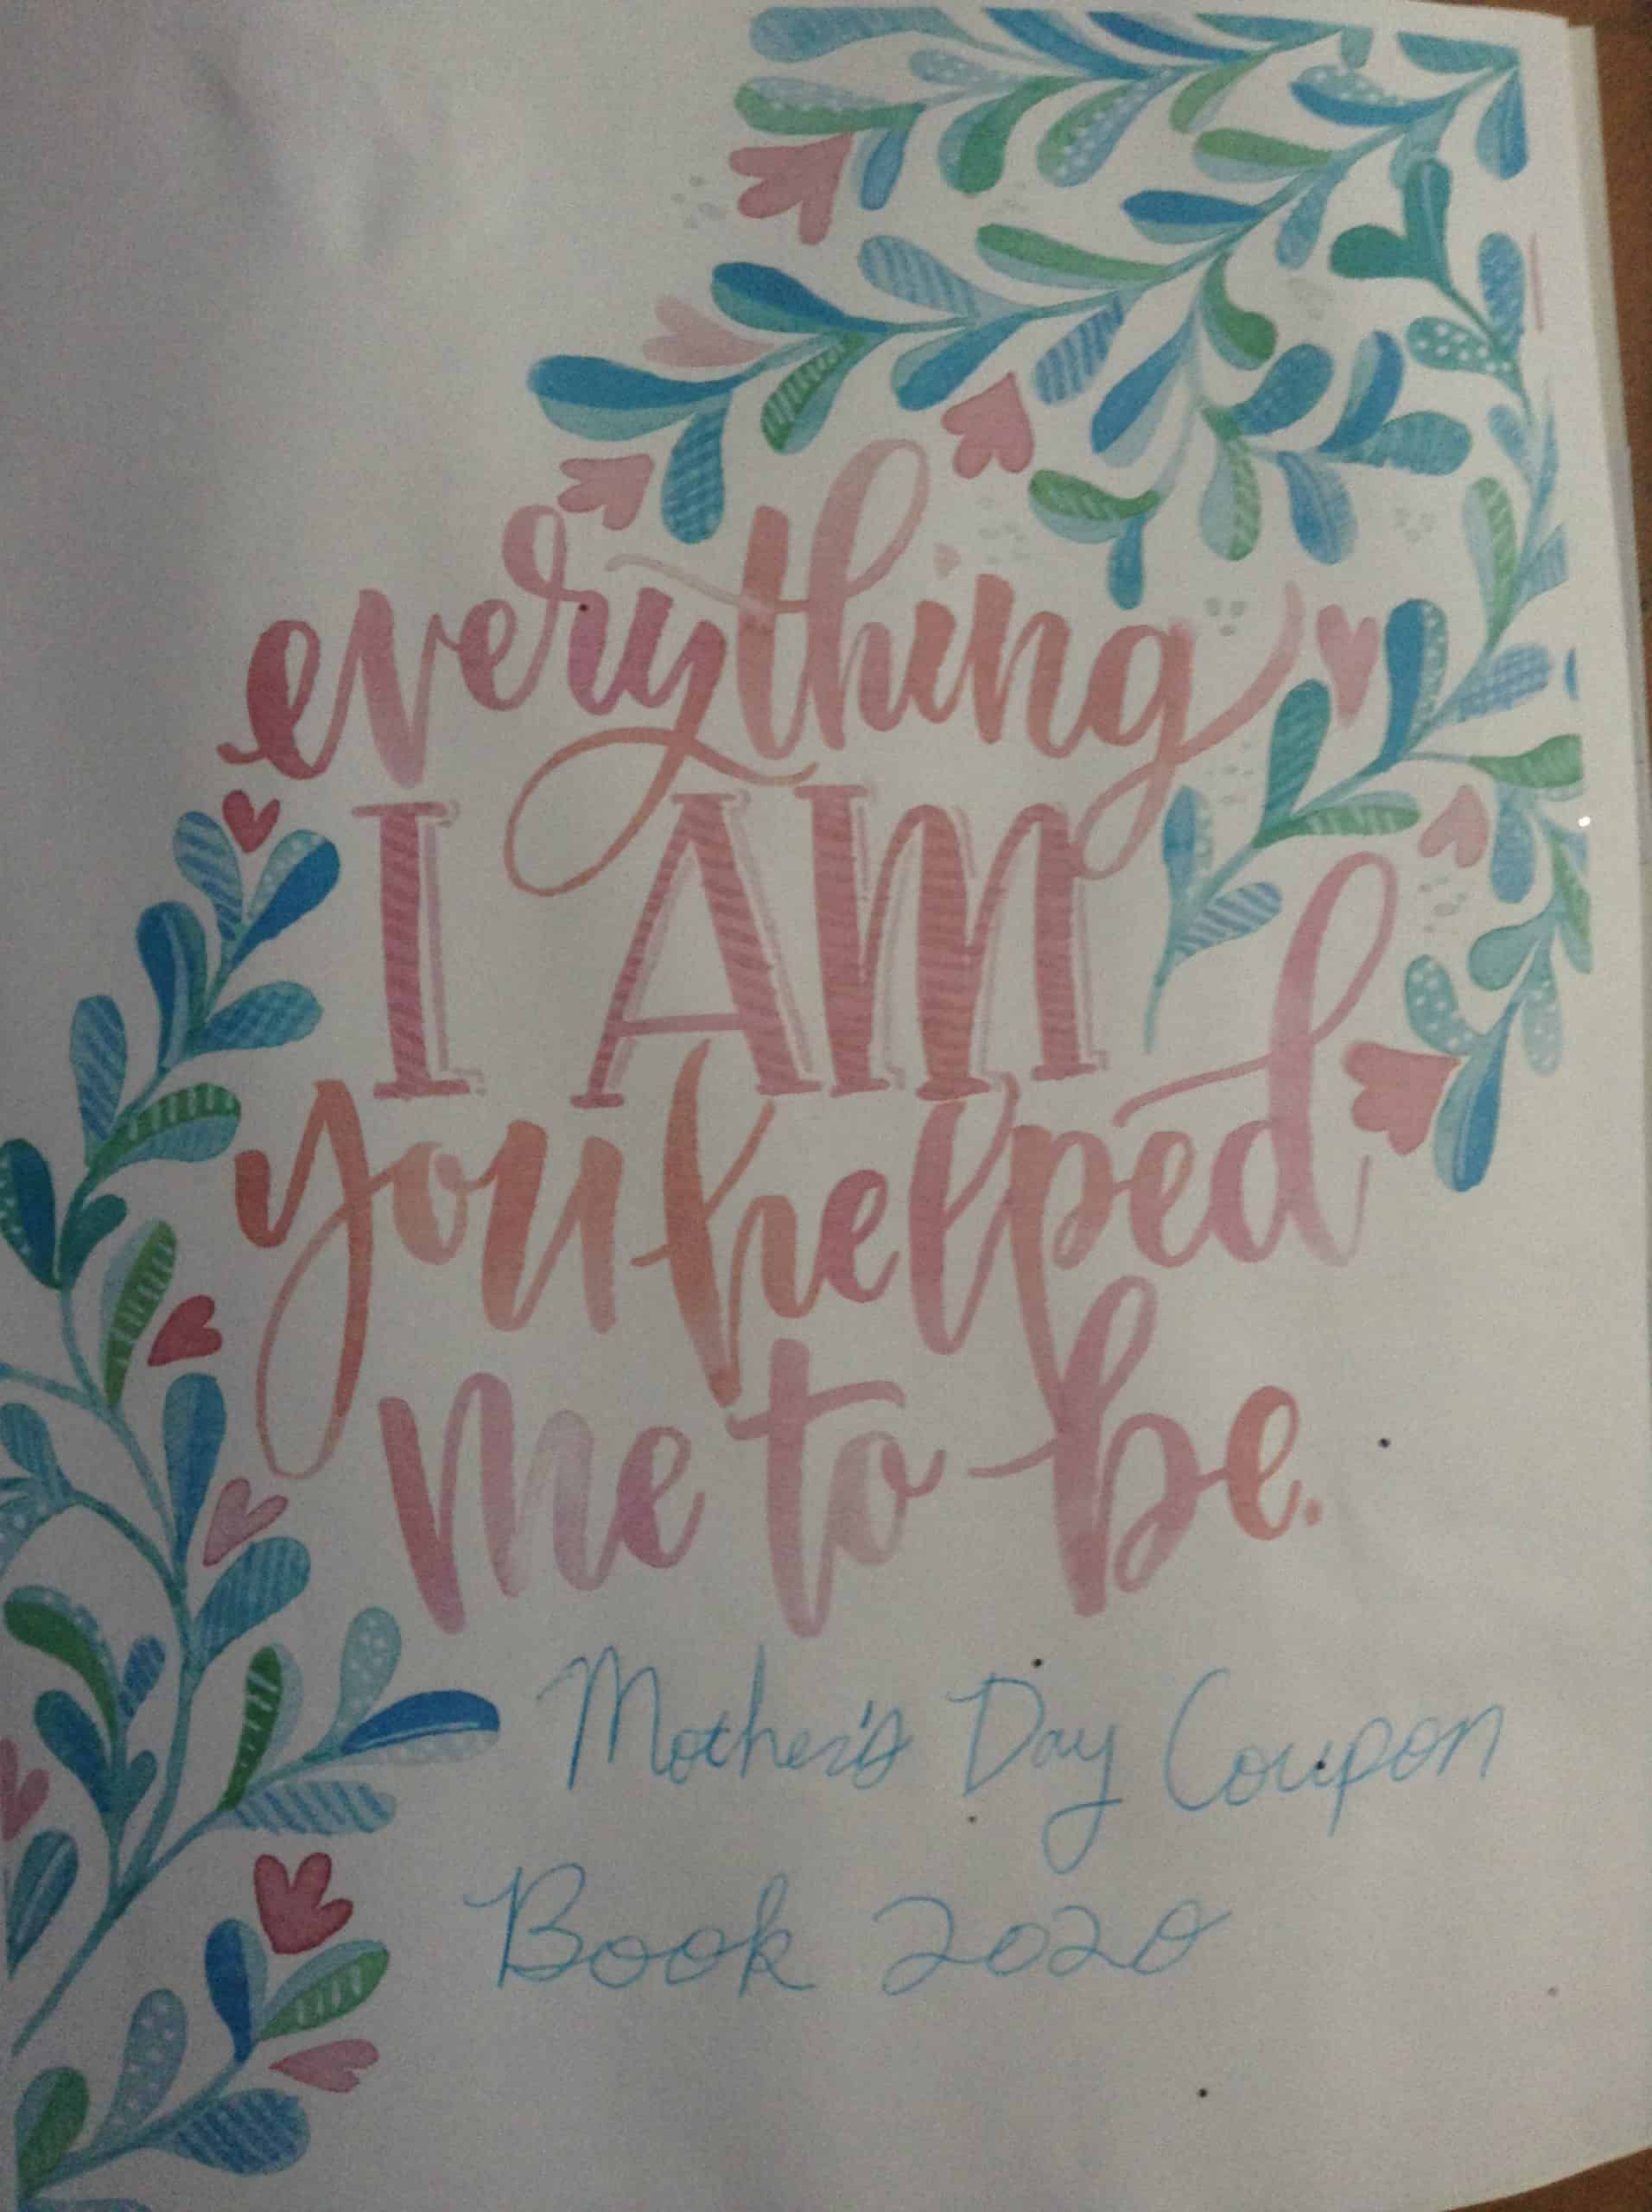 everything
I AM
you helped
me to be.
Mother's Day Coupon
Book 2020